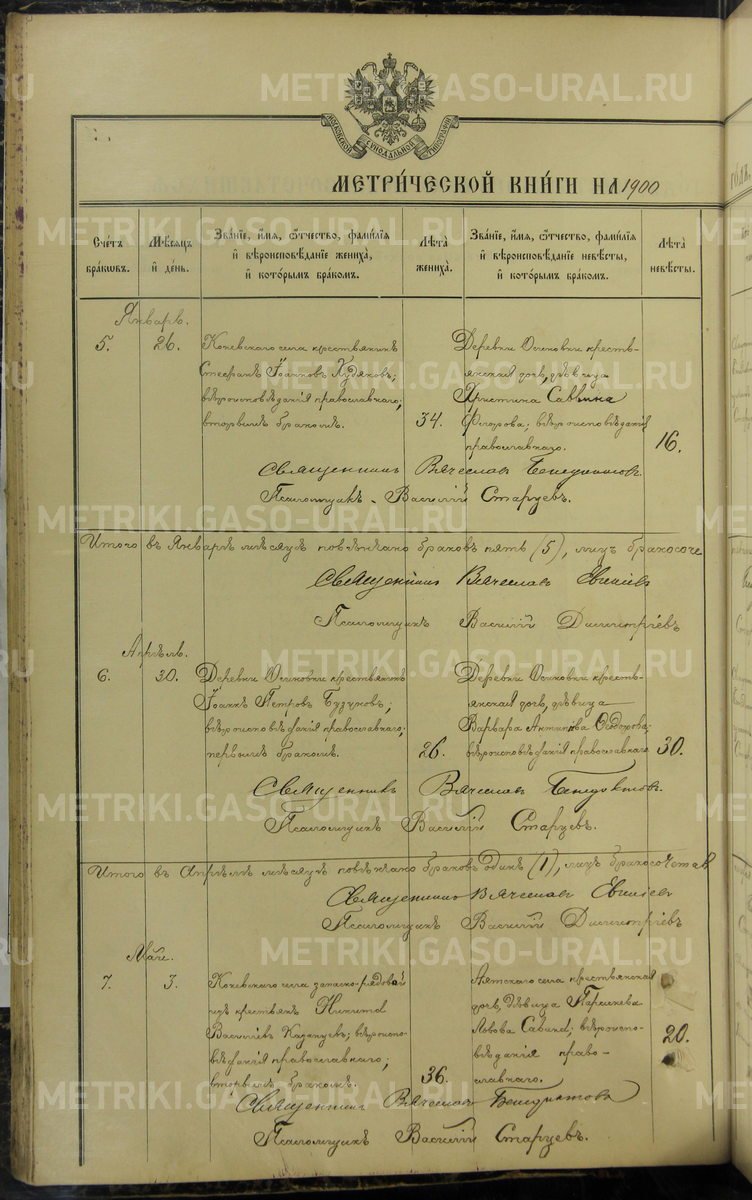 METRIKI.GASO-URAL.RU
МОСКОВСКОЙ СѴНОДАЛЬНОЙ ТИПОГРАФІИ
МЕТРИ́ЧЕСКОЙ КНИ́ГИ НА 1900
Сче́тъ бра́кωвъ.
Мѣ́сяцъ и҆ де́нь.
Зва́нїе, и҆́мя, ѻ҆́тчество, фами́лїя и҆ вѣроисповѣ́данїе жениха̀, и҆ кото́рымъ бра́комъ.
Лѣ́та жениха̀.
Зва́нїе, и҆́мя, ѻ҆́тчество, фами́лїя и҆ вѣроисповѣ́данїе невѣ́сты, и҆ кото́рымъ бра́комъ.
Лѣ́та невѣ́сты.
Январь.
5. 26.
Коневскаго села крестьянинъ
Стефанъ Іоанновъ Худяковъ;
вѣроисповѣданія православнаго;
вторымъ бракомъ.
34.
Деревни Осиновки кресть-
янская дочь, дѣвица
Христина Саввина
Флорова; вѣроисповѣданія
православнаго.
16.
Священникъ Вячеславъ
Псаломщикъ Василій Старцевъ.
Итого въ Январѣ мѣсяцѣ повѣнчано браковъ пять (5), лицъ бракосоче
Священникъ Вячеславъ
Псаломщикъ Василій Димитріевъ
Апрѣль.
6. 30.
Деревни Осиновки крестьянинъ
Іоаннъ Петровъ
вѣроисповѣданія православнаго;
первымъ бракомъ.
26.
Деревни Осиновки кресть-
янская дочь, дѣвица
Варвара Антипова Ѳедорова;
вѣроисповѣданія православнаго
30.
Священникъ Вячеславъ
Псаломщикъ Василій Старцевъ.
Итого въ Апрѣлѣ мѣсяцѣ повѣнчано браковъ одинъ (1), лицъ бракосочетав
Священникъ Вячеславъ
Псаломщикъ Василій Димитріевъ
Май.
7. 3.
Коневскаго села запасно-рядовой
изъ крестьянъ Никита
Василіевъ вѣроиспо-
вѣданія православнаго;
вторымъ бракомъ.
36.
Аятскаго села крестьянская
дочь, дѣвица Параскева
Львова вѣроиспо-
вѣданія право-
славнаго.
20.
Священникъ Вячеславъ
Псаломщикъ Василій Старцевъ.